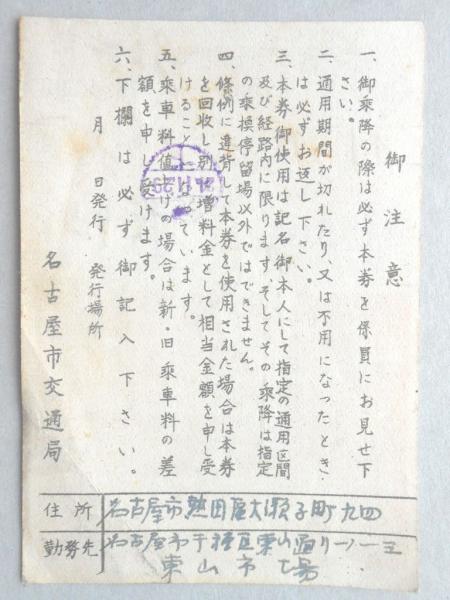 御注意
一、御乗降の際は必ず本券を係員にお見せ下
さい。
二、通用期間が切れたり、又は不用になったとき
は必ずお返し下さい。
三、本券御使用は記名御本人にして指定の通用区間
及び経路内に限ります、そしてその乗降は指定
の乗換停留場以外ではできません。
四、條例に違背して本券を使用された場合は本券
を回収し別に増料金として相当金額を申し受
けることになっています。
五、乗車料値上げの場合は新・旧乗車料の差
額を申し受けます。
六、下欄は必ず御記入下さい。
月 日発行 発行場所
名古屋市交通局
住所 名古屋市熱田区大瀬子町九四
勤務先 名古屋市千種区東山通り一ノ一三
東山市場